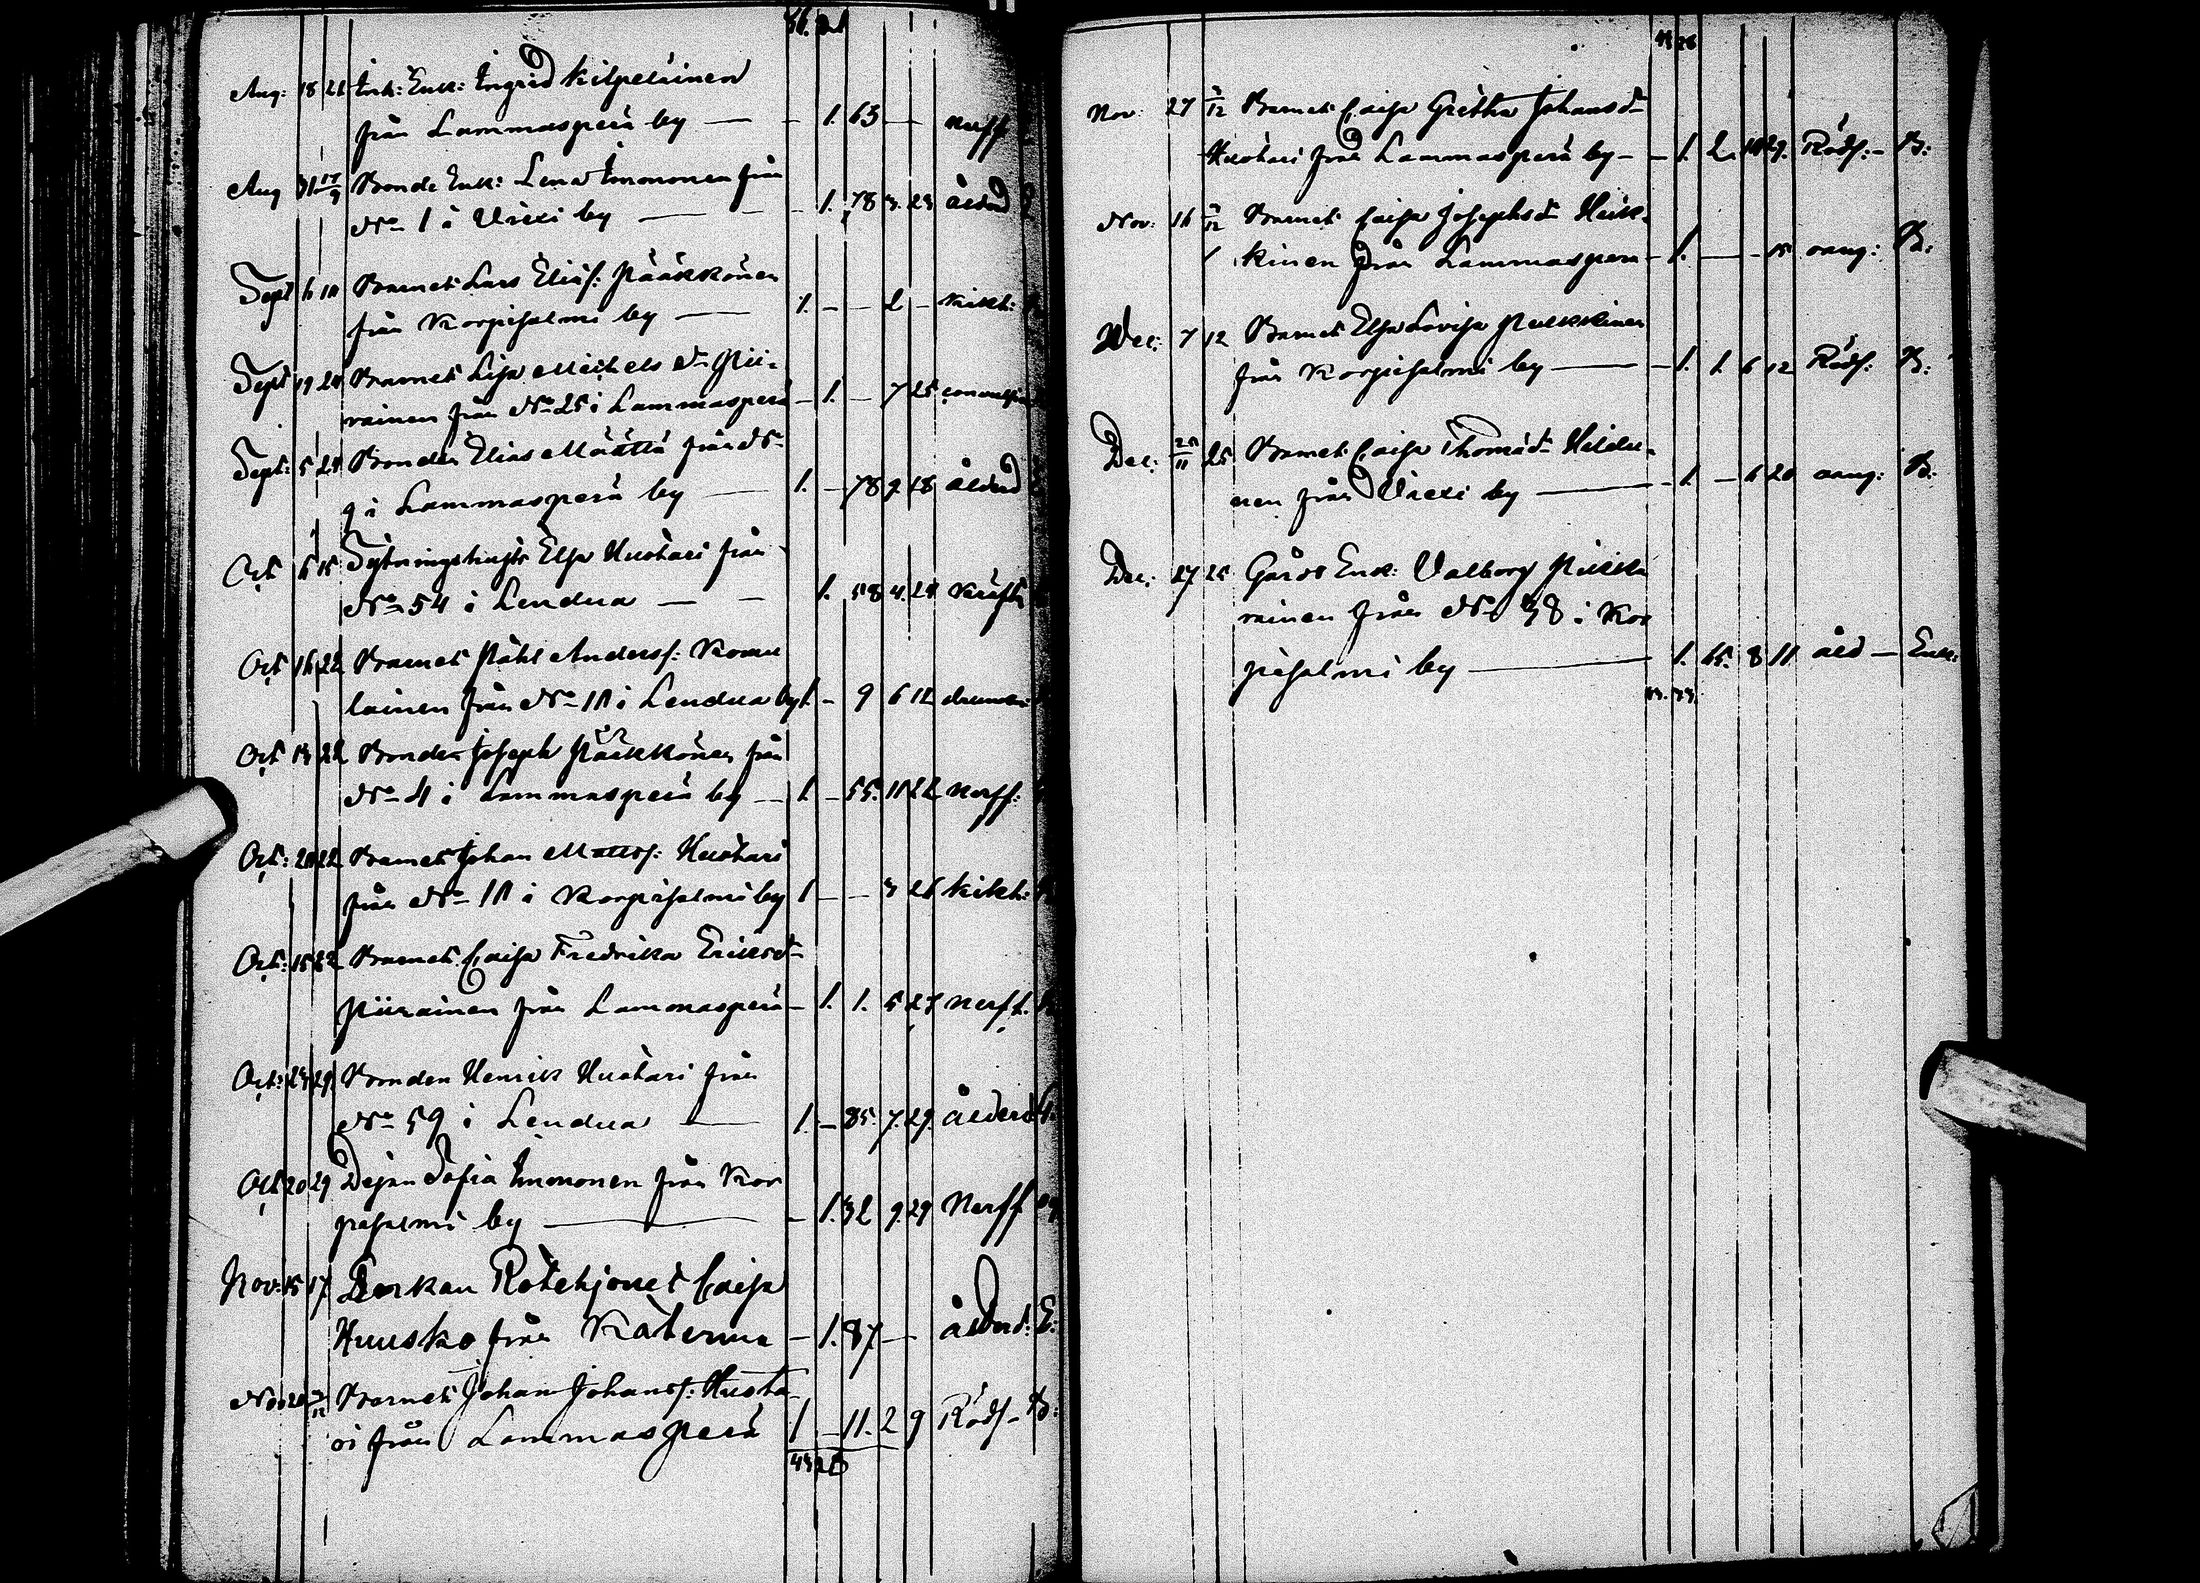 36. 21
Aug: 18 21 Inh: Enk: Ingrid Kilpeläinen
från Lammasperä by — - 1. 63 — nerff
Aug 31 17/9 Bonde Enk: Lena Immonen från
No 1 i Viexi by — - 1. 78 3. 23 ålderd
Sept 6 10 Barnet Lars Eliæs: Pääkkönen
från Korpisalmi by — 1. - - 2 - kikh:
Sept 19 24 Barnet Lisa Michels dr Pii-
rainen från No 25 i Lammasperä - 1. - 7 25
Sept: 5 24 Bonden Elias Määttä från No
9 i Lammasperä by — 1. - 78 9 18 ålderd
Oct 6 15 Sytningshajts Elsa Huotari från
No 54 i Lendua — - 1. 58 4. 24 Kräfta
Oct 16 22 Barnet Påhl Anderss: Komu
lainen från No 10 i Lendua by 1. - 9 6 12
Oct 13 22 Bonden Joseph Pääkkönen från
No 4 i Lammasperä by — 1. - 55. 10 22 Nerff:
Oct: 20 22 Barnet Johan Mattss: Huotari
från No 10 i Korpisalmi by 1 - - 3 26 kikh:
Oct: 15 22 Barnet Caisa Fredrika Eriksd-
Piirainen från Lammasperä - 1. 1. 5 27 Nerff.
Oct: 23 29 Bonden Henrik Huotari från
No 59 i Lendua — 1. - 85. 7. 29. Ålderd
Oct 20 29 Dejan Sofia Immonen från Kor
pisalmi by — - 1. 32 9. 29 Nerff
Nov: 15 17 Enkan Rotehjonet Caisa
Huusko från Katerma - 1. 87 — ålderd: E:
Nov 20 3/12 Barnet Johan Johanss: Huota
ri från Lammasperä 1 - 11. 2 9 Röds- B:
43 28
43 28
Nov 27 3/12 Barnet Caisa Gretha Johansd-
Huotari från Lammasperä by - - 1. 2. 10 29. Röds: - B:
Nov: 16 3/12 Barnet Caisa Josephsd- Heik-
kinen från Lammasperä - 1. — - 15 oang: B:
Dec: 7 12 Barnet Elsa Lovisa Pulkkinen
från Korpisalmi by — - 1. 1. 6 12 Röds: B:
Dec: 25/11 25 Barnet Caisa Thomæd- Heldu-
nen från Viexi by — - 1. - 6 20 oang: B:
Dec: 17 25 Gårds Enk: Valborg Pikka
rainen från No 38 i Kor
pisalmi by — 1. 65. 8 11 åld — Enk:
43. 33.